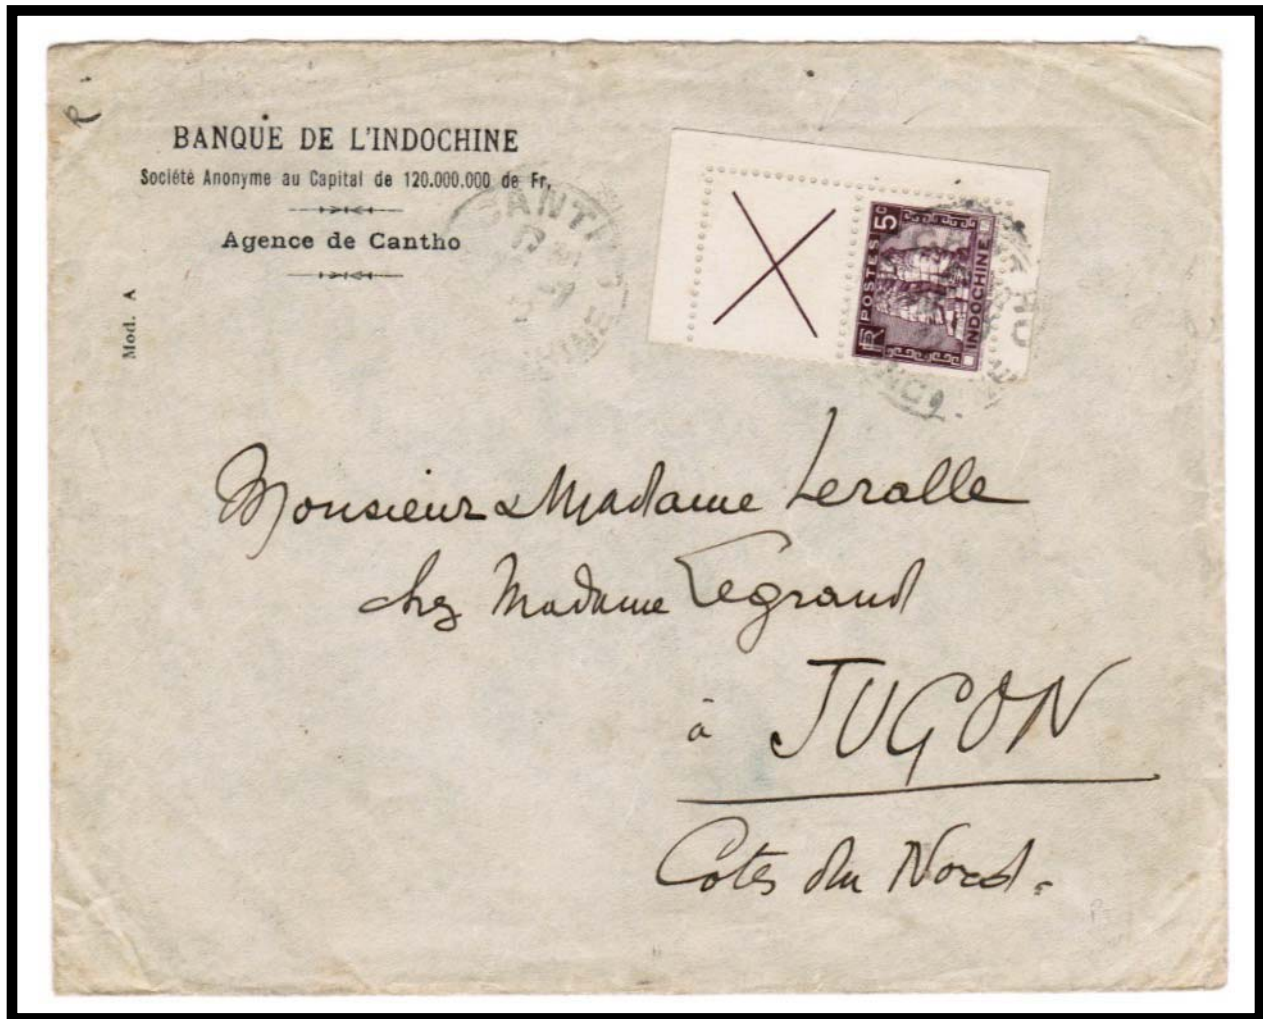 R
BANQUE DE L'INDOCHINE
Société Anonyme au Capital de 120.000.000 de Fr.
Agence de Cantho
Mod. A
POSTES 5c
RF INDOCHINE
Monsieur & Madame Leralle
chez Madame Legrand
à JUGON
Cotes du Nord.